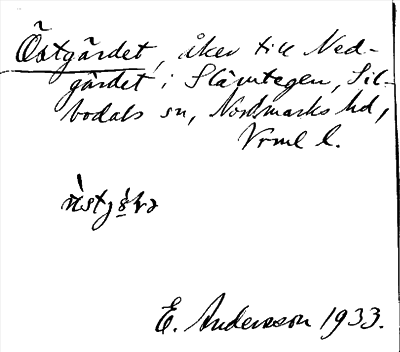 Östgärdet, åker till Ned-
gärdet i Slärtegen, Sil-
bodals sn, Nordmarks hd,
Vrml l.
E. Andersson 1933.